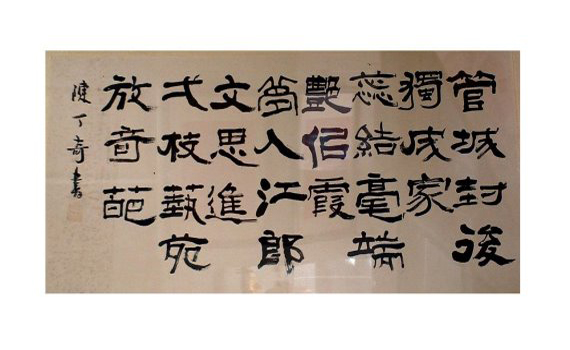 管城封後
獨成家
蕊結毫端
艷佀霞
夢入江郎
文思進
弌枝藝苑
放竒葩
陳丁奇書